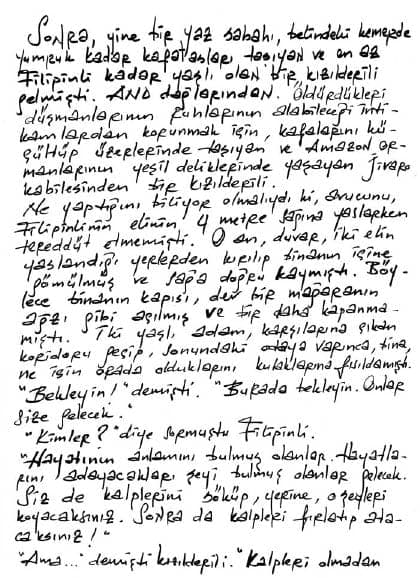 Sonra, yine bir yaz sabahı, belindeki kemerde
yumruk kadar kafatasları taşıyan ve en az
Filipinli kadar yaşlı olan bir kızılderili
gelmişti. AND dağlarından. Öldürdükleri
düşmanlarının ruhlarının alabileceği inti-
kamlardan korunmak için, kafalarını kü-
çültüp üzerlerinde taşıyan ve Amazon or-
manlarının yeşil deliklerinde yaşayan Jivaro
kabilesinden bir kızılderili.
Ne yaptığını biliyor olmalıydı ki, avucunu,
Filipinlinin elinin 4 metre sağına yaslarken
tereddüt etmemişti. O an, duvar, iki elin
yaslandığı yerlerden kırılıp binanın içine
gömülmüş ve sağa doğru kaymıştı. Böy-
lece binanın kapısı, dev bir mağaranın
ağzı gibi açılmış ve bir daha kapanma-
mıştı. İki yaşlı adam, karşılarına çıkan
koridoru geçip, sonundaki odaya varınca, bina,
ne için orada olduklarını kulaklarına fısıldamıştı.
"Bekleyin!" demişti. "Burada bekleyin. Onlar
size gelecek."
"Kimler?" diye sormuştu Filipinli.
"Hayatının anlamını bulmuş olanlar. Hayatla-
rını adayacakları şeyi bulmuş olanlar gelecek.
Siz de kalplerini söküp, yerine, o şeyleri
koyacaksınız. Sonra da kalpleri fırlatıp ata-
caksınız!"
"Ama..." demişti kızılderili. "Kalpleri olmadan